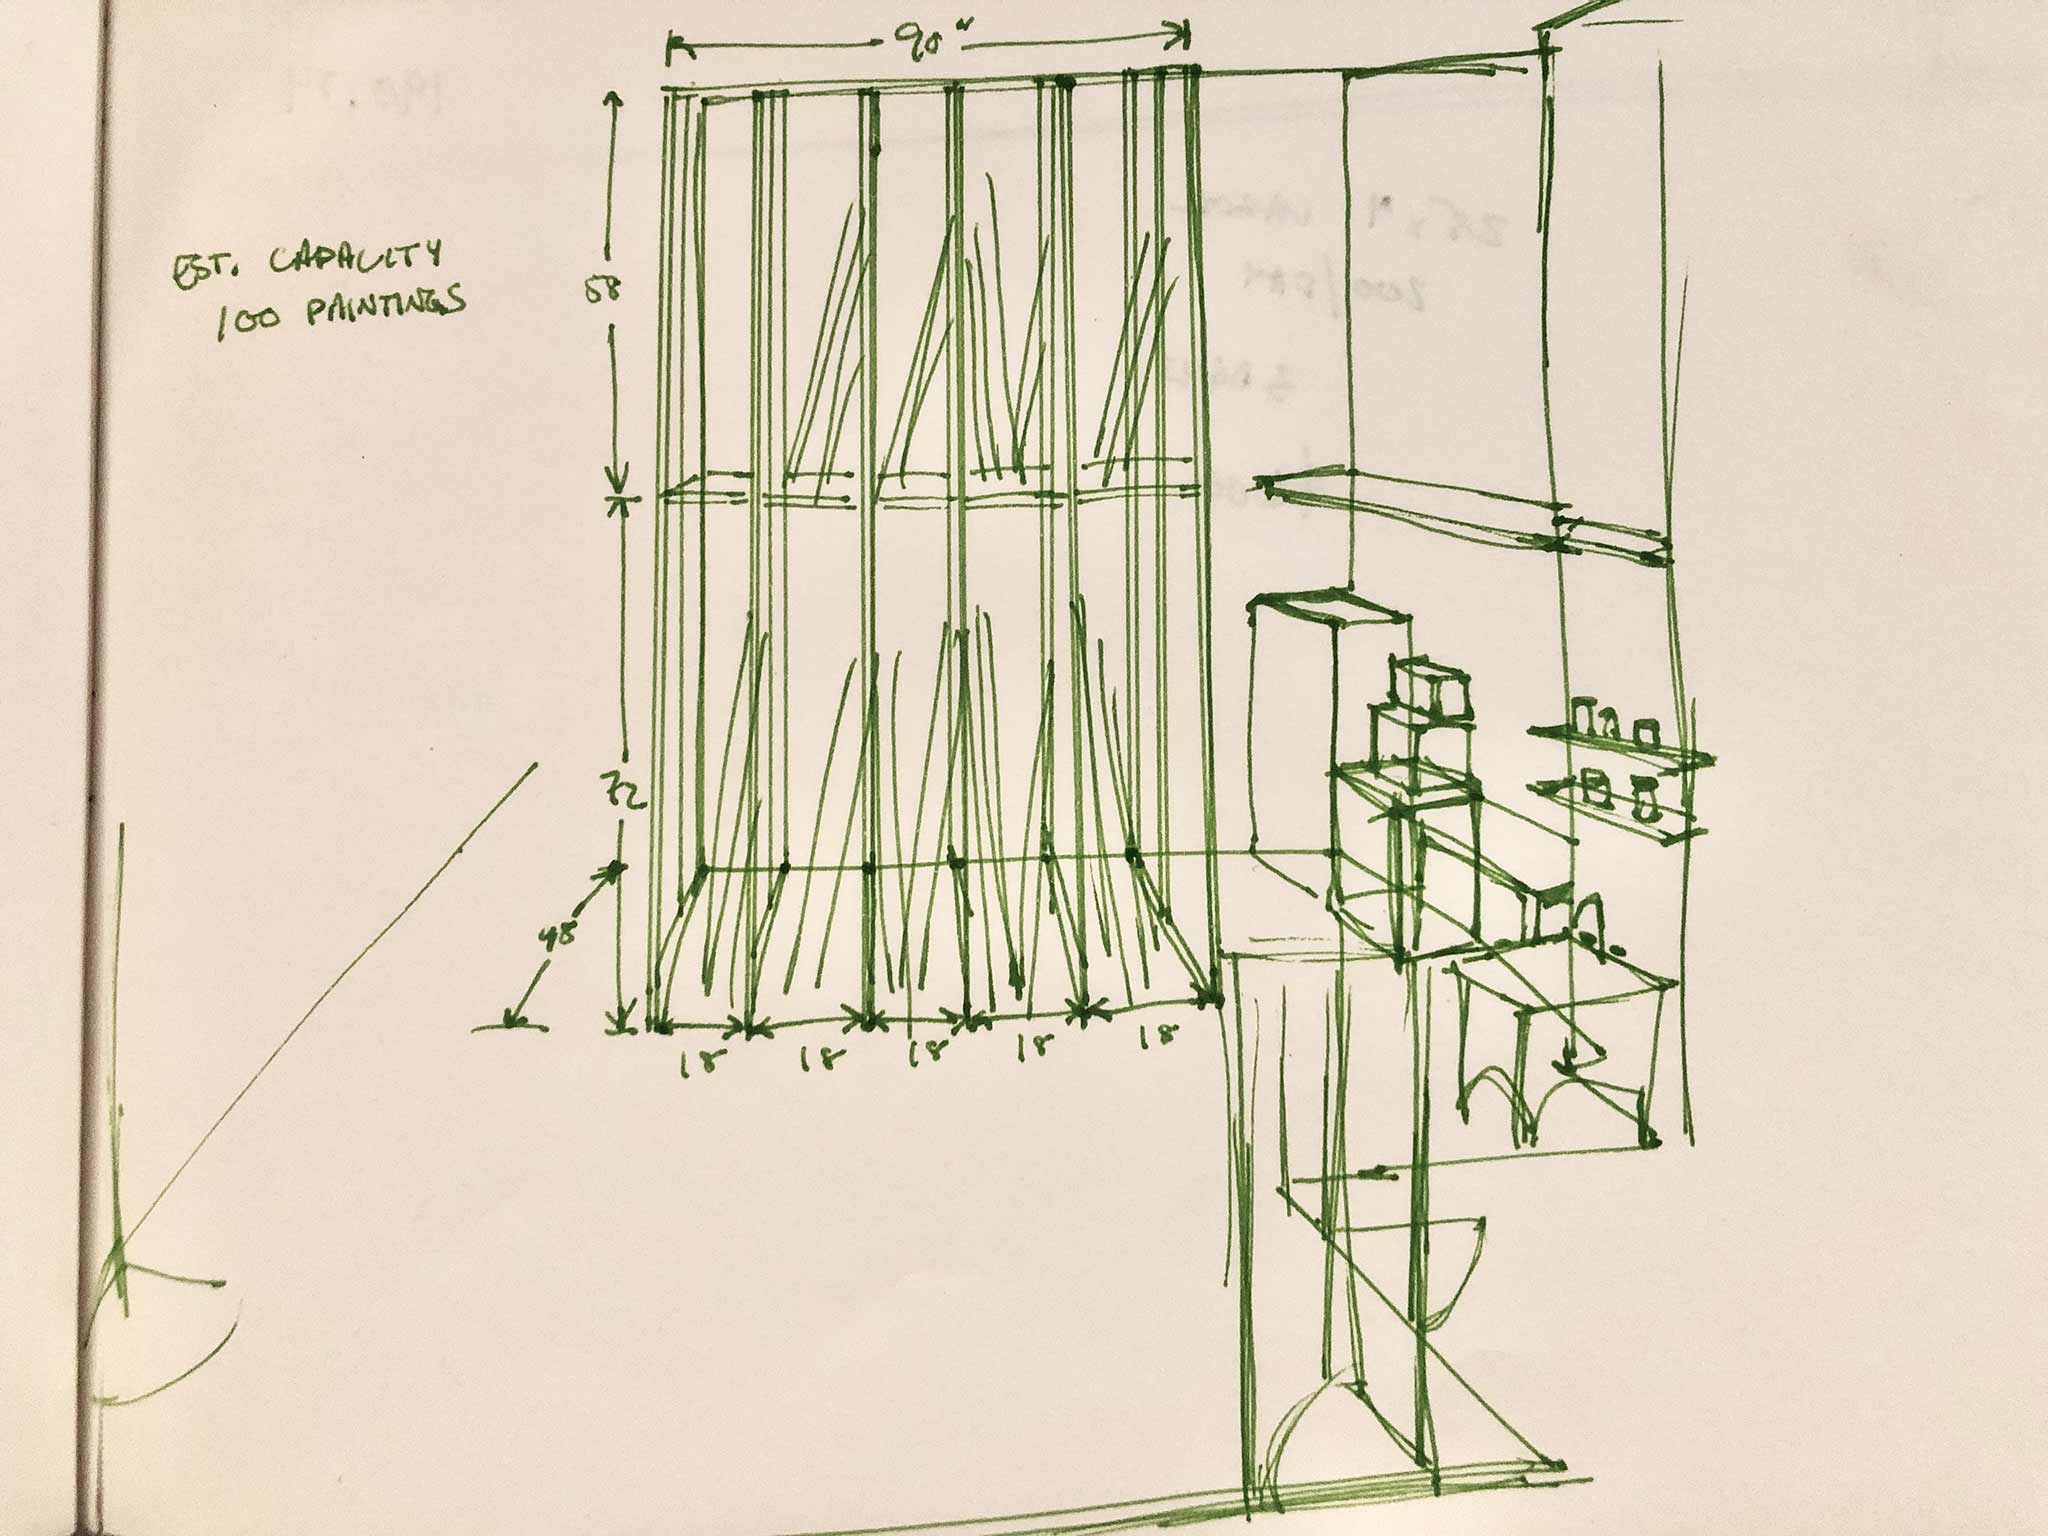 90"
EST. CAPACITY
100 PAINTINGS
58
72
48
18 18 18 18 18